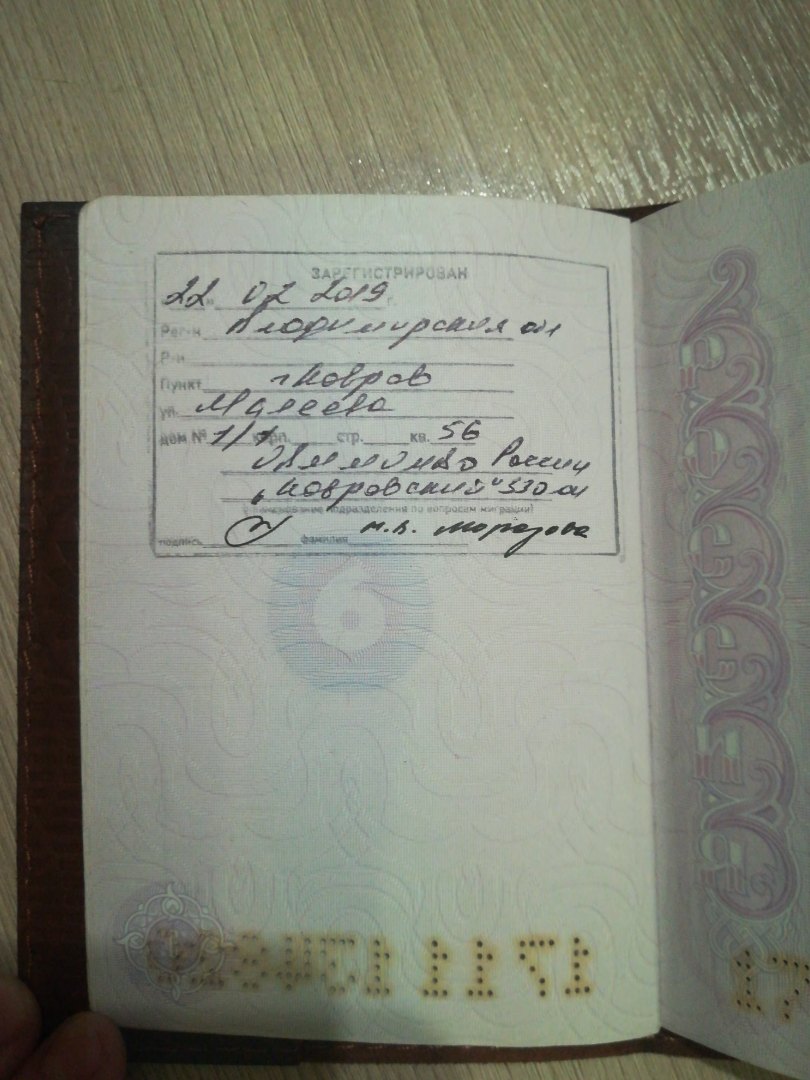 ЗАРЕГИСТРИРОВАН
22 " 02 2019 г.
Рег-н Владимирская обл
Р-н
Пункт г Ковров
ул. Малеева
дом № 1/1 корп. стр. кв. 56
ОВМ ММ ОМВД России
"Ковровский" 330 01
(наименование подразделения по вопросам миграции)
подпись фамилия Н.В. Морозова
6
17 11
17